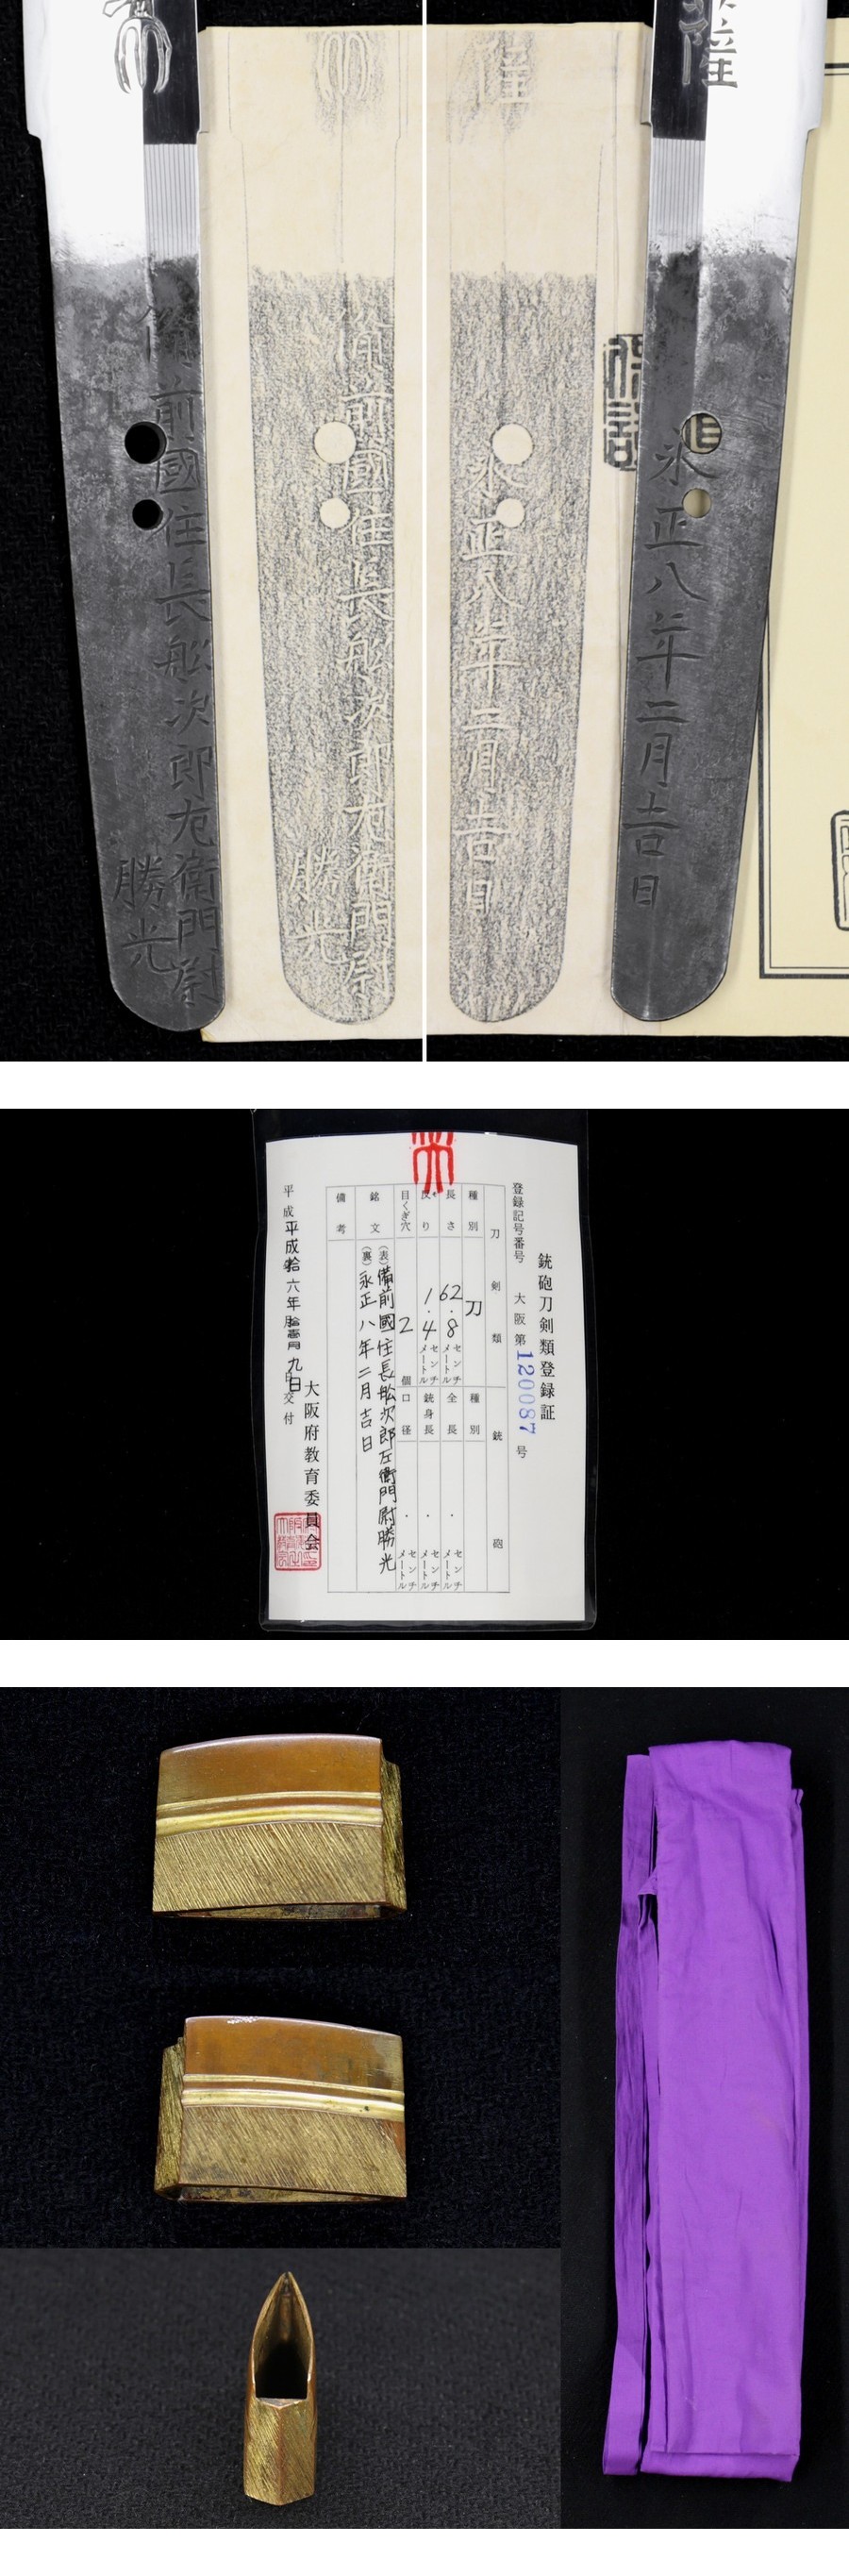 備前國住長船次郎左衛門尉
勝光
備前國住長船次郎左衛門尉
勝光
永正八年二月吉日
永正八年二月吉日
銃砲刀剣類登録証
登録記号番号 大阪 第120087号
刀剣類
種別 刀
長さ 62.8 センチメートル
反り 1.4 センチメートル
目くぎ穴 2 個
銘文
(表)備前國住長船次郎左衛門尉勝光
(裏)永正八年二月吉日
備考
銃砲
種別
全長 . センチメートル
銃身長 . センチメートル
口径 . センチメートル
平成 平成拾六年拾壱月九日 交付
大阪府教育委員会